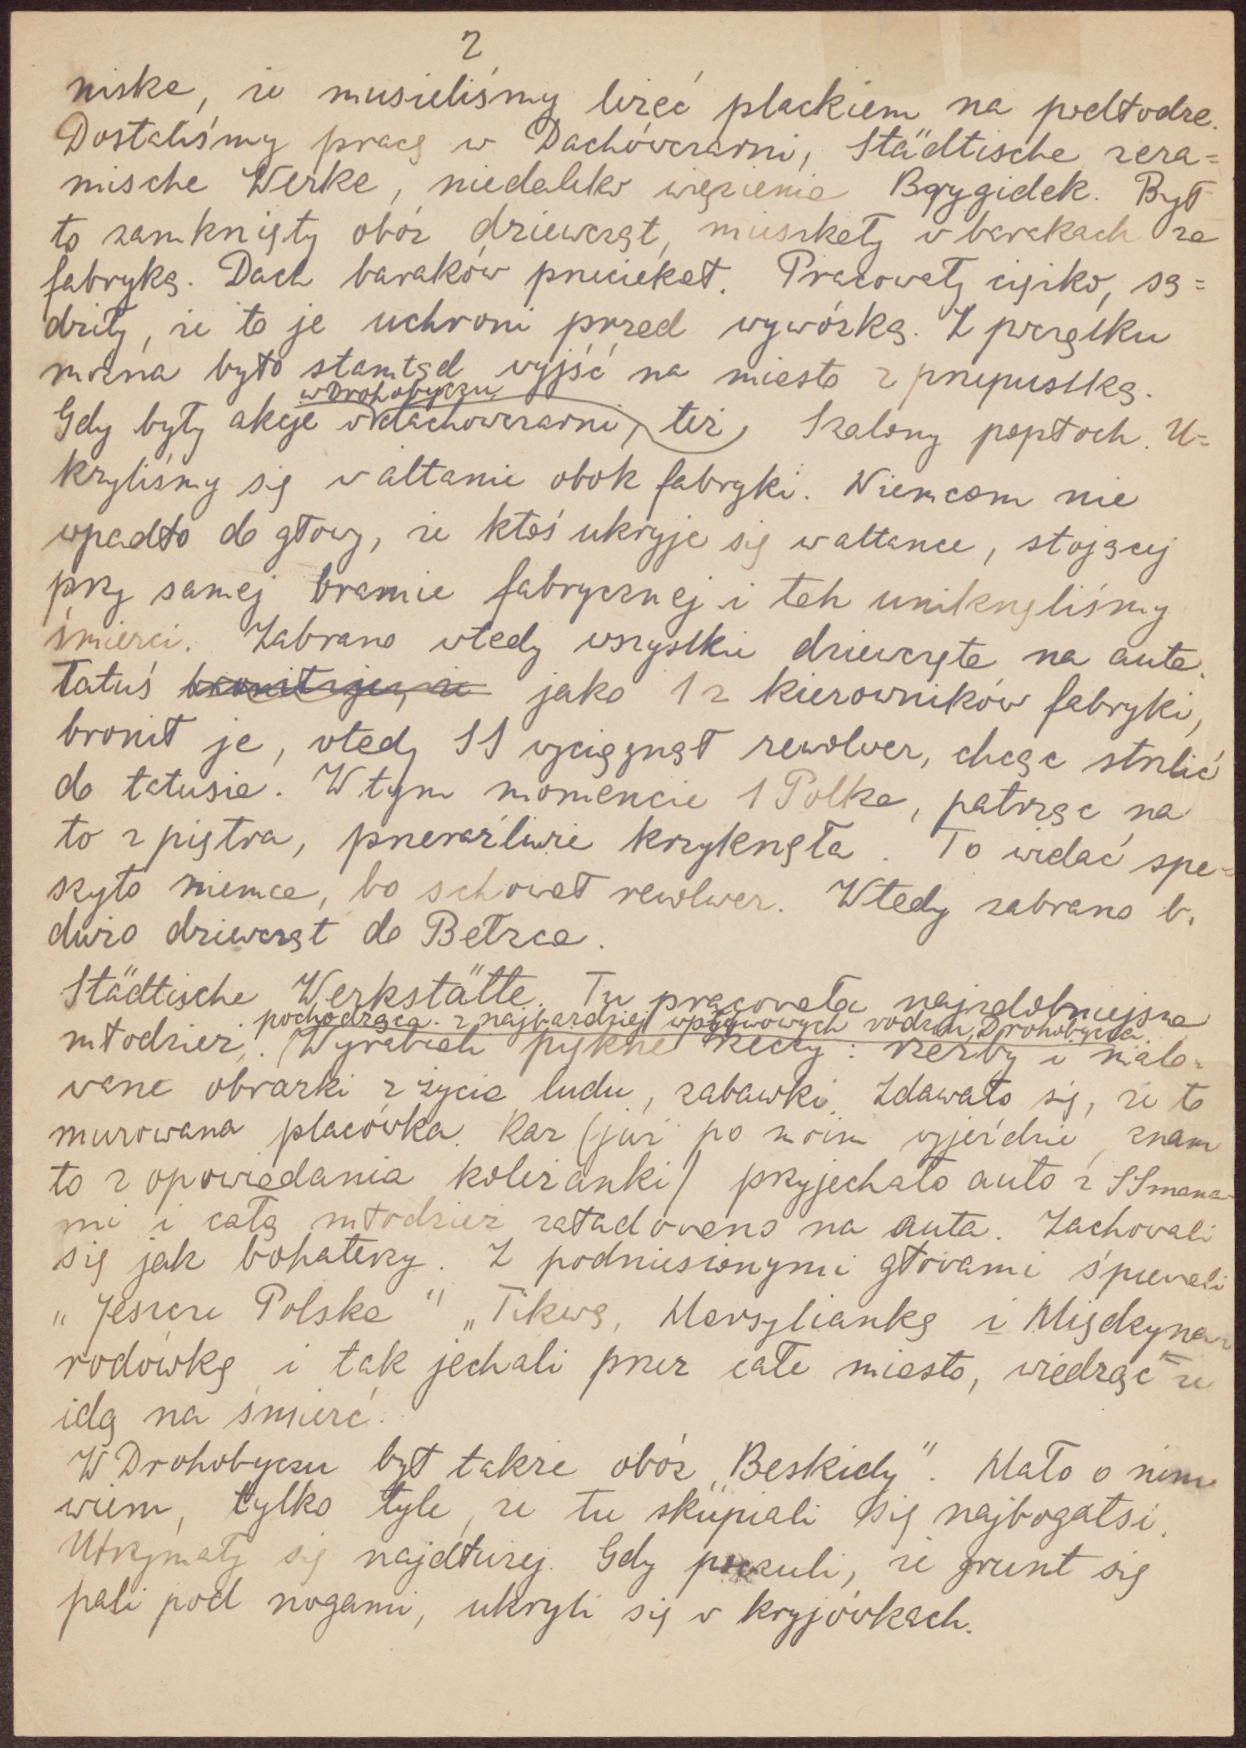 2
niska, że musieliśmy leżeć plackiem na podłodze.
Dostaliśmy pracę w Dachówczarni, Städtische zera=
mische Werke, niedaleko więzienia Brygidek. Był
to zamknięty obóz dziewcząt, mieszkały w barakach za
fabryką. Dach baraków przeciekał. Pracowały ciężko, są=
dziły, że to je uchroni przed wywózką. Z początku
można było stamtąd wyjść na miasto z przepustką.
w Drohobyczu
Gdy były akcje w dachowczarni, też, Szalony popłoch. U=
kryliśmy się w altanie obok fabryki. Niemcom nie
wpadło do głowy, że ktoś ukryje się w altance, stojącej
przy samej bramie fabrycznej i tak uniknęliśmy
śmierci. Zabrano wtedy wszystkie dziewczęta na auta.
Tatuś bronił je, że jako 1 z kierowników fabryki,
bronił je, wtedy SS wyciągnął rewolwer, chcąc strzelić
do tatusia. W tym momencie 1 Polka, patrząc na
to z piętra, przeraźliwie krzyknęła. To widać spe=
szyło niemca, bo schował rewolwer. Wtedy zabrano b.
dużo dziewcząt do Bełżca.
Städtische Werkstätte. Tu pracowała najzdolniejsza
pochodząca z najbardziej wpływowych rodzin Drohobycza.
młodzież. (Wyrabiali piękne rzeczy: rzeźby i malo=
wane obrazki z życia ludu, zabawki. Zdawało się, że to
murowana placówka. Raz (już po moim wyjeździe, znam
to z opowiadania koleżanki) przyjechało auto z SSmana=
mi i całą młodzież załadowano na auta. Zachowali
się jak bohaterzy. Z podniesionymi głowami śpiewali
„Jeszcze Polska" „Tikwę, Marsyliankę i Międzyna=
rodówkę i tak jechali przez całe miasto, wiedząc że
idą na śmierć.
W Drohobyczu był także obóz „Beskidy". Mało o nim
wiem, tylko tyle, że tu skupiali się najbogatsi.
Utrzymały się najdłużej. Gdy poczuli, że grunt się
pali pod nogami, ukryli się w kryjówkach.